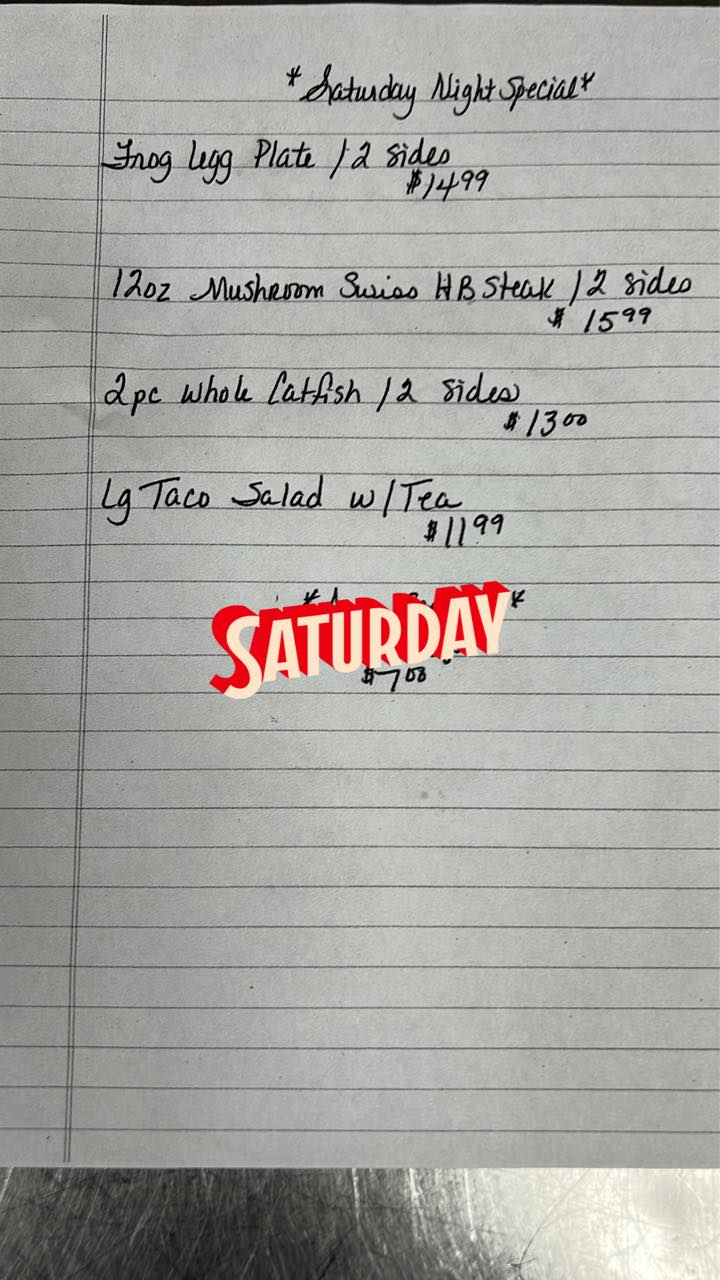 *Saturday Night Special*
Frog Legg Plate / 2 sides
$14.99
12oz Mushroom Swiss HB Steak / 2 sides
$ 15.99
2pc Whole Catfish / 2 sides
$13.00
Lg Taco Salad w/ Tea
$11.99
SATURDAY
$7.00